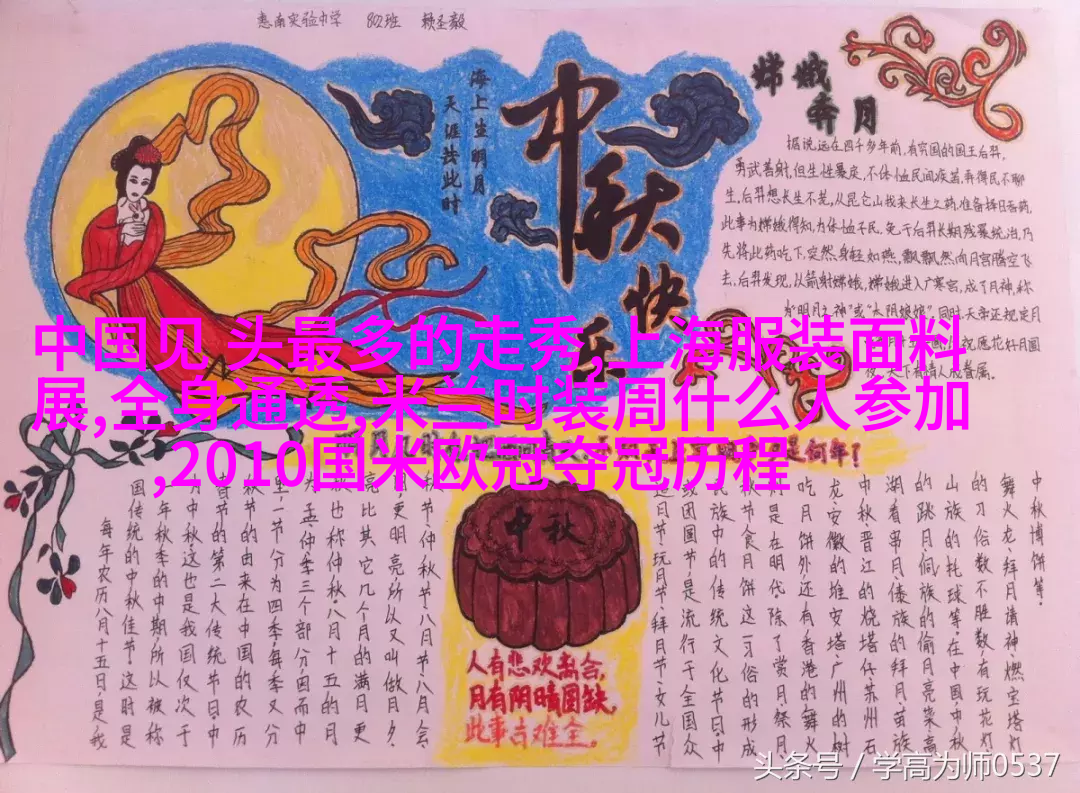 惠南实验中学 802班 赖圣毅
海上生明月
天涯共此时
中秋快乐
嫦娥奔月
据说远在四千多年前,有穷国的国王后羿,
勇武善射,但生性暴戾,不体恤民间疾苦,弄得民不聊
生,后羿想长生不老,从昆仑山找来长生之药,准备择日吞药,
此事为嫦娥得知,为体恤平民,免于后羿长期残暴统治,乃
先将此药吃下,突然,身轻如燕,飘飘然向月宫腾空飞
去,后羿发现,以箭射嫦娥,嫦娥进入广寒宫,成了月神,称
为"明月之神"或"太阴娘娘",同时天帝还规定月
祝愿花好月圆
天下有情人成眷属。
中国见 头最多的走秀,上海服装面料
展,全身通透,米兰时装周什么人参加
,2010国米欧冠夺冠历程
是何年?
每年农历八月十五日,是我
国传统的中秋佳节。这时是
年秋季的中期,所以被称
中秋,这也是我国仅次于
春节的第二大传统节日。中
秋节的由来在中国的农历
里一节分为四季,每季又分
为孟仲季三个部分,因而中
也称仲秋。八月十五的月
亮比其它几个月的满月更
更明亮,所以又叫做月夕、
秋节、仲秋节、八月节、八月会、
中秋
人有悲欢离合,
月有阴晴圆缺,
此事古难全。
追月节、玩月节、拜月节、女儿节
或团圆节,是流行于全国众
民族中的传统文化节日,中
秋节食月饼这一习俗的形成
是在明代。除了赏月、祭月、
吃月饼外还有香港的舞火
龙、安徽的堆宝塔、广州的树
中秋、晋江的烧塔仔、苏州石
湖看串月、傣族的拜月、苗族
的跳月、侗族的偷月亮菜、高
山族的托球等,在中国,中秋
的习俗数不胜数,有玩花灯、
舞火龙、拜月请神、燃宝塔灯
中秋博饼等。
头条号 / 学高为师0537